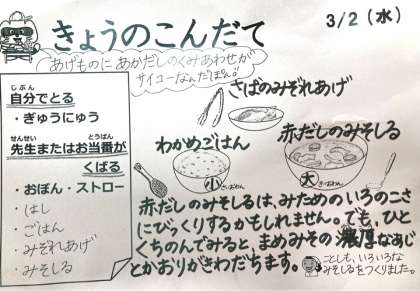 3/2（水）
きょうのこんだて
あげものに あかだしのくみあわせが
サイコーなんだぽん♪
じぶん
自分でとる
・ぎゅうにゅう
せんせい とうばん
先生またはお当番が
くばる
・おぼん・ストロー
・はし
・ごはん
・みぞれあげ
・みそしる
さばのみぞれあげ
わかめごはん
小
赤だしのみそしる
大
赤だしのみそしるは、みためのいろのこさ
にびっくりするかもしれません。でも、ひと
くちのんでみると、まめみその濃厚なあじ
とかおりがきわだちます。
ことしも、いろいろな
みそしるをつくりました。